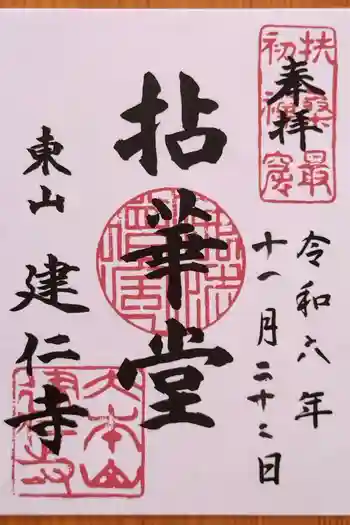 扶桑最
初禪窟
奉拝
令和六年
十一月二十二日
拈華堂
東山
建仁寺
大本山
建仁寺